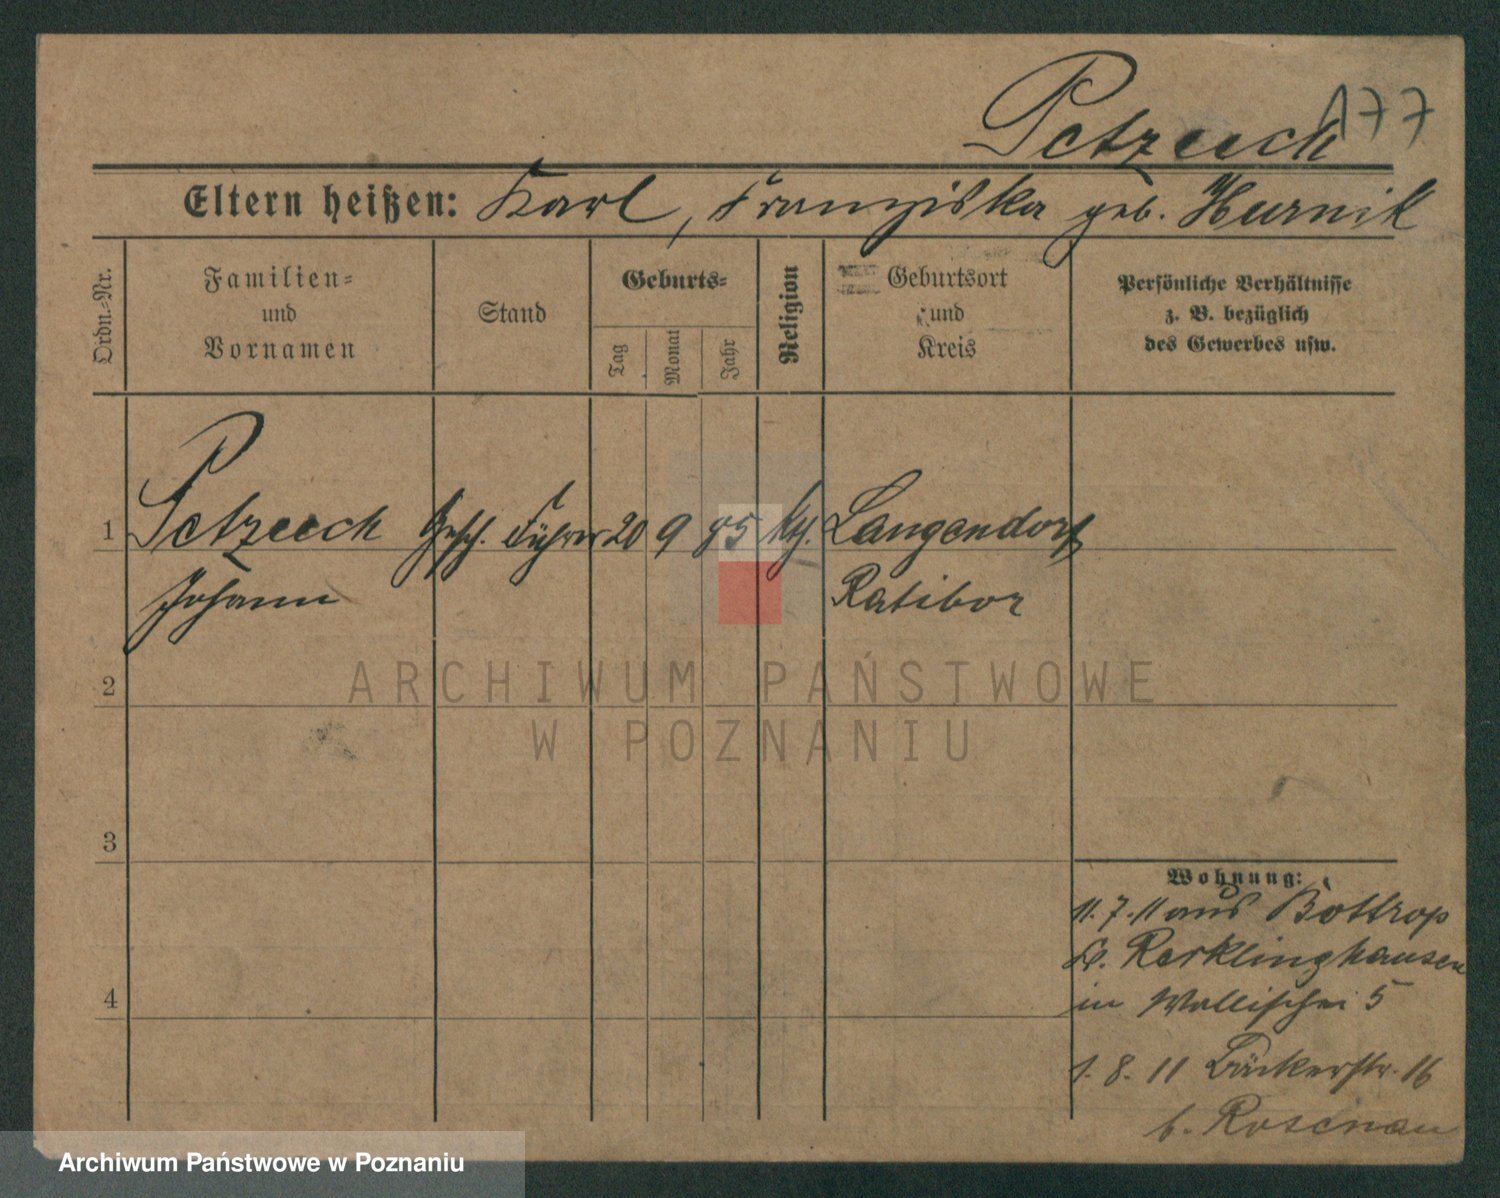 177
Petzeech
Eltern heißen: Karl, Franziska geb. Hurnik
Ordn.-Nr.
Familien-
und
Vornamen
Stand
Geburts-
Tag
Monat
Jahr
Religion
Geburtsort
und
Kreis
Persönliche Verhältnisse
z. B. bezüglich
des Gewerbes usw.
1 Petzeech Gesch. Führer 20 9 85 kth. Langendorf
Johann Ratibor
2
3
4
Wohnung:
11.7.11 aus Bottrop
Kr. Recklinghausen
in Wallischei 5
1.8.11 Bäckerstr. 16
b. Rosenau
ARCHIWUM PAŃSTWOWE
W POZNANIU
Archiwum Państwowe w Poznaniu